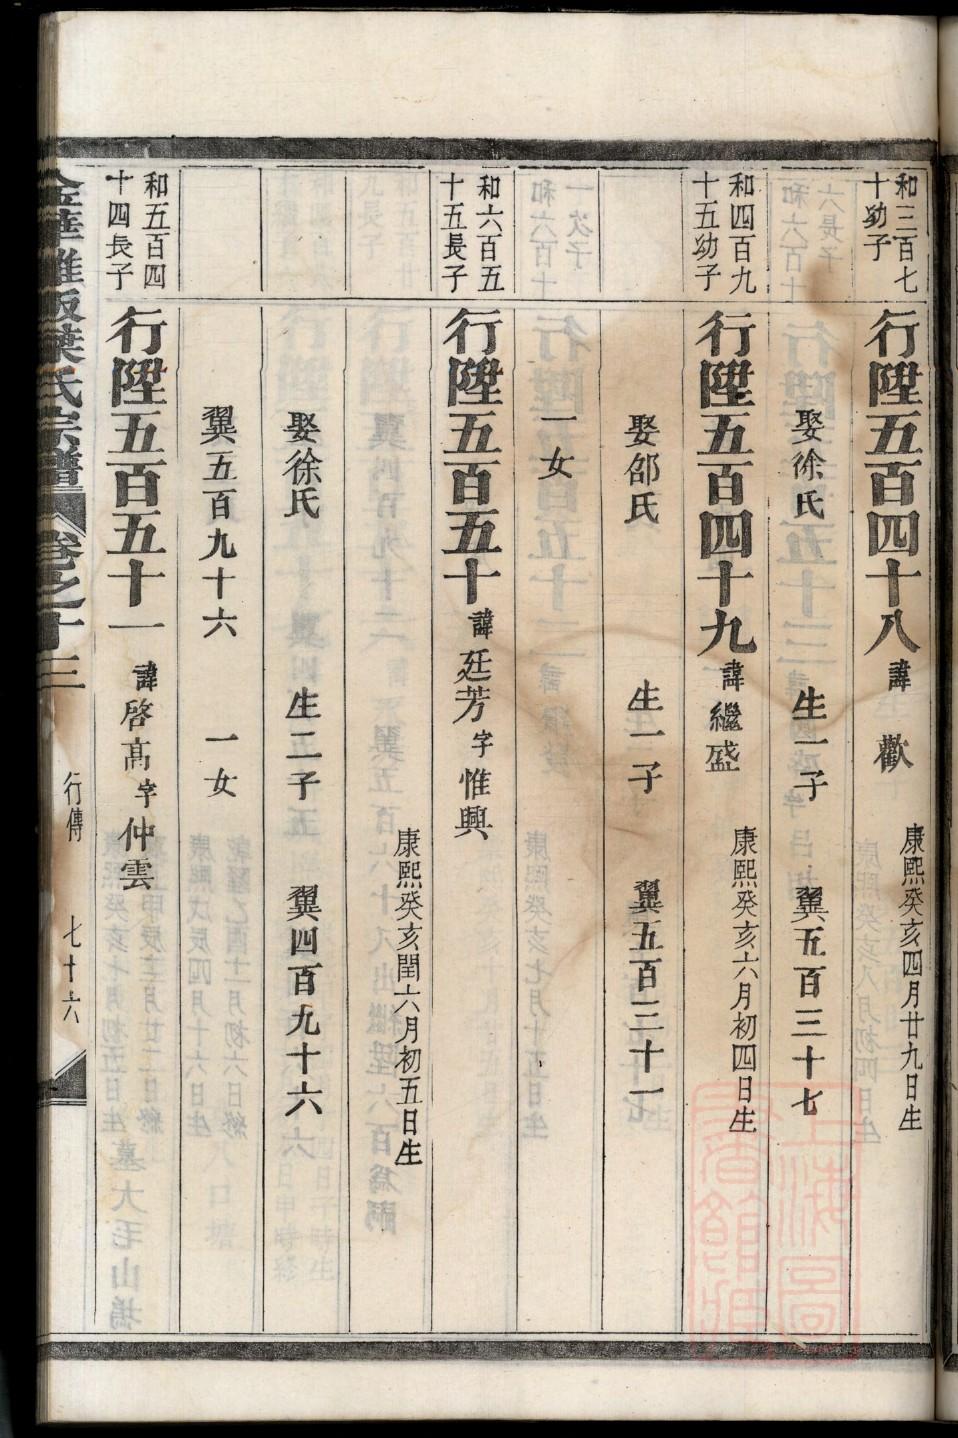 和三百七
十幼子
行陞五百四十八 諱 歡
康熙癸亥四月廿九日生
娶徐氏 生一子 翼五百三十七
和四百九
十五幼子
行陞五百四十九 諱 繼盛
康熙癸亥六月初四日生
娶邵氏 生一子 翼五百二十一
一女
和六百五
十五長子
行陞五百五十 諱 廷芳 字 惟興
康熙癸亥閏六月初五日生
娶徐氏 生二子 翼四百九十六
翼五百九十六 一女
和五百四
十四長子
行陞五百五十一 諱 啓高 字 仲雲
葉氏宗譜 卷之十三 行傳 七十六